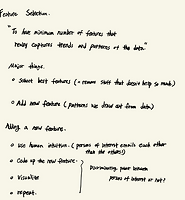 Feature Selection.
"To have minimum number of features that
really captures trends and patterns of the data"
Major things.
o Select best features (+ remove stuff that doesn't help so much)
o Add new feature (patterns we draw out from data)
Adding a new feature.
o Use human intuition. (persons of interest emails each other
than the others!)
o Code up the new feature.
o Visualize
o repeat.
Discriminating power between
person of interest or not?